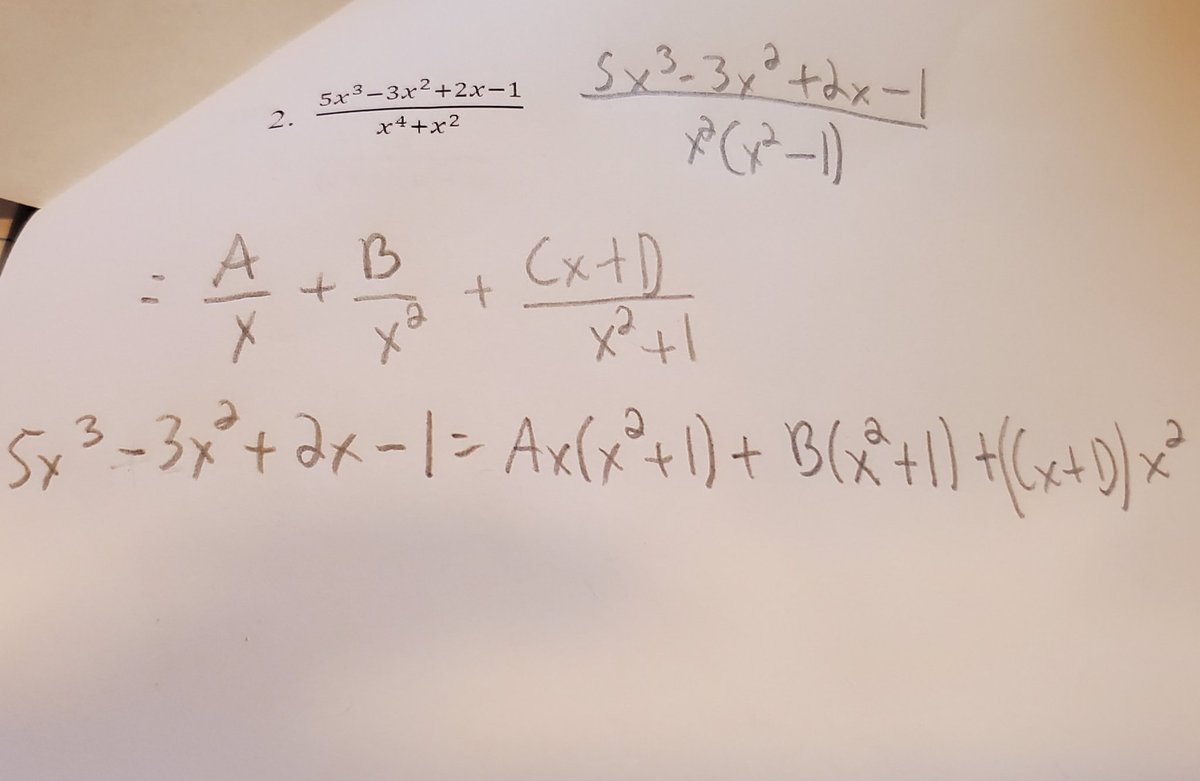 2. \frac{5x^3-3x^2+2x-1}{x^4+x^2} \frac{5x^3-3x^2+2x-1}{x^2(x^2-1)}
= \frac{A}{x} + \frac{B}{x^2} + \frac{Cx+D}{x^2+1}
5x^3-3x^2+2x-1 = Ax(x^2+1) + B(x^2+1) + (Cx+D)x^2